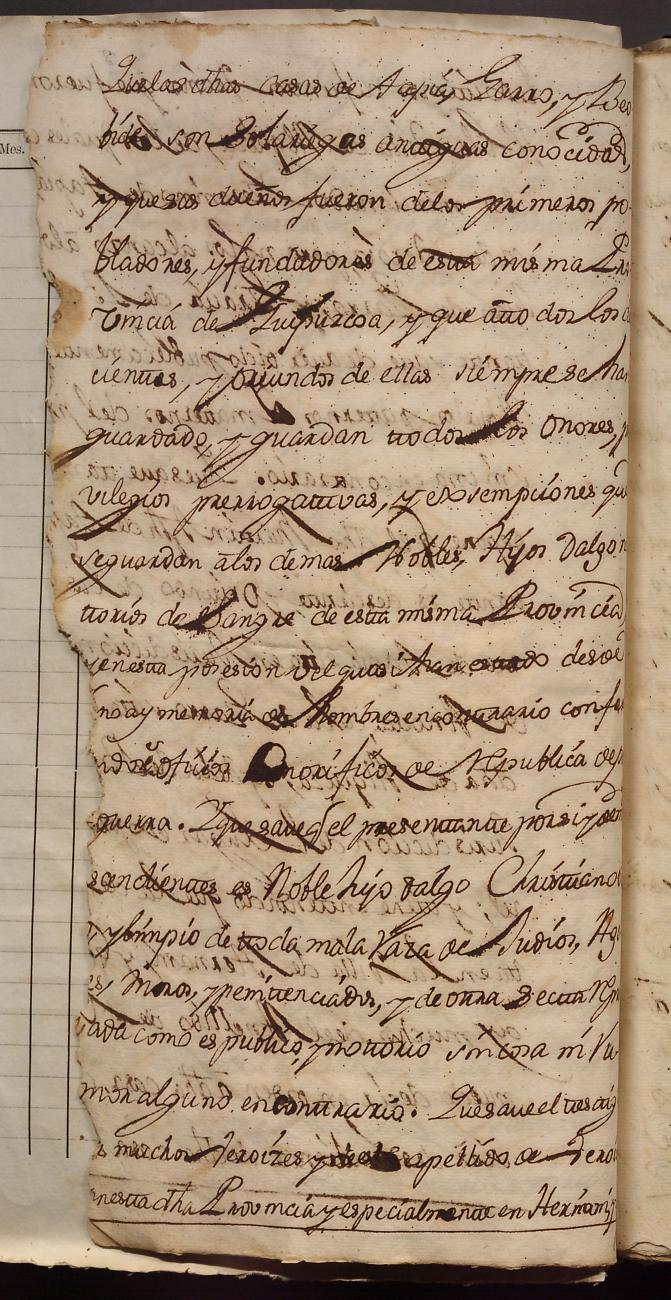 Que las dhas casas de Aapia, Garro, y Beo
bide son Solariegas antiguas conocidas,
y que sus dueños fueron delos primeros po-
bladores, y fundadores de esta misma Pro
vincia de Guipuzcoa, y que atto dos los
cientes, y oriundos de ellas siempre se han
guardado, y guardan ttodos los Onores,
vilegios prerrogattivas, y exsempciones que
seguardan alos demas Nobles, Hijos Dalgo
ttorios de Sangre de estta misma Provincia
enesta posesion velquasi han estado desde
no ay memoria de hombres encontrario
oficios Onorificos de Republica de
guerra. Que save q̃ el presenttante porsi y
scendientes es Noble hijo dalgo Christiano
y limpio de ttoda mala Raza de Judios,
Moros, y penittenciados, y de otra Sectta
vada como es publico, y nottorio sin cosa ni Ru
mor alguno encontrario. Que save el ttestig
muchos Beroizes y de apellido de Beroi
enesta dha Provincia y especialmente en Hernani